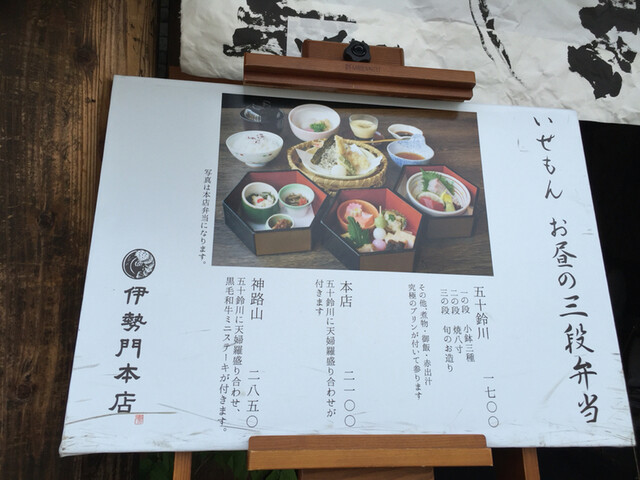 いせもん お昼の三段弁当
五十鈴川 一七〇〇
一の段 小鉢三種
二の段 焼八寸
三の段 旬のお造り
その他、煮物・御飯・赤出汁
究極のプリンが付いて参ります
本店 二一〇〇
五十鈴川に天婦羅盛り合わせが
付きます
神路山 二八五〇
五十鈴川に天婦羅盛り合わせ、
黒毛和牛ミニステーキが付きます。
写真は本店弁当になります。
伊勢門本店